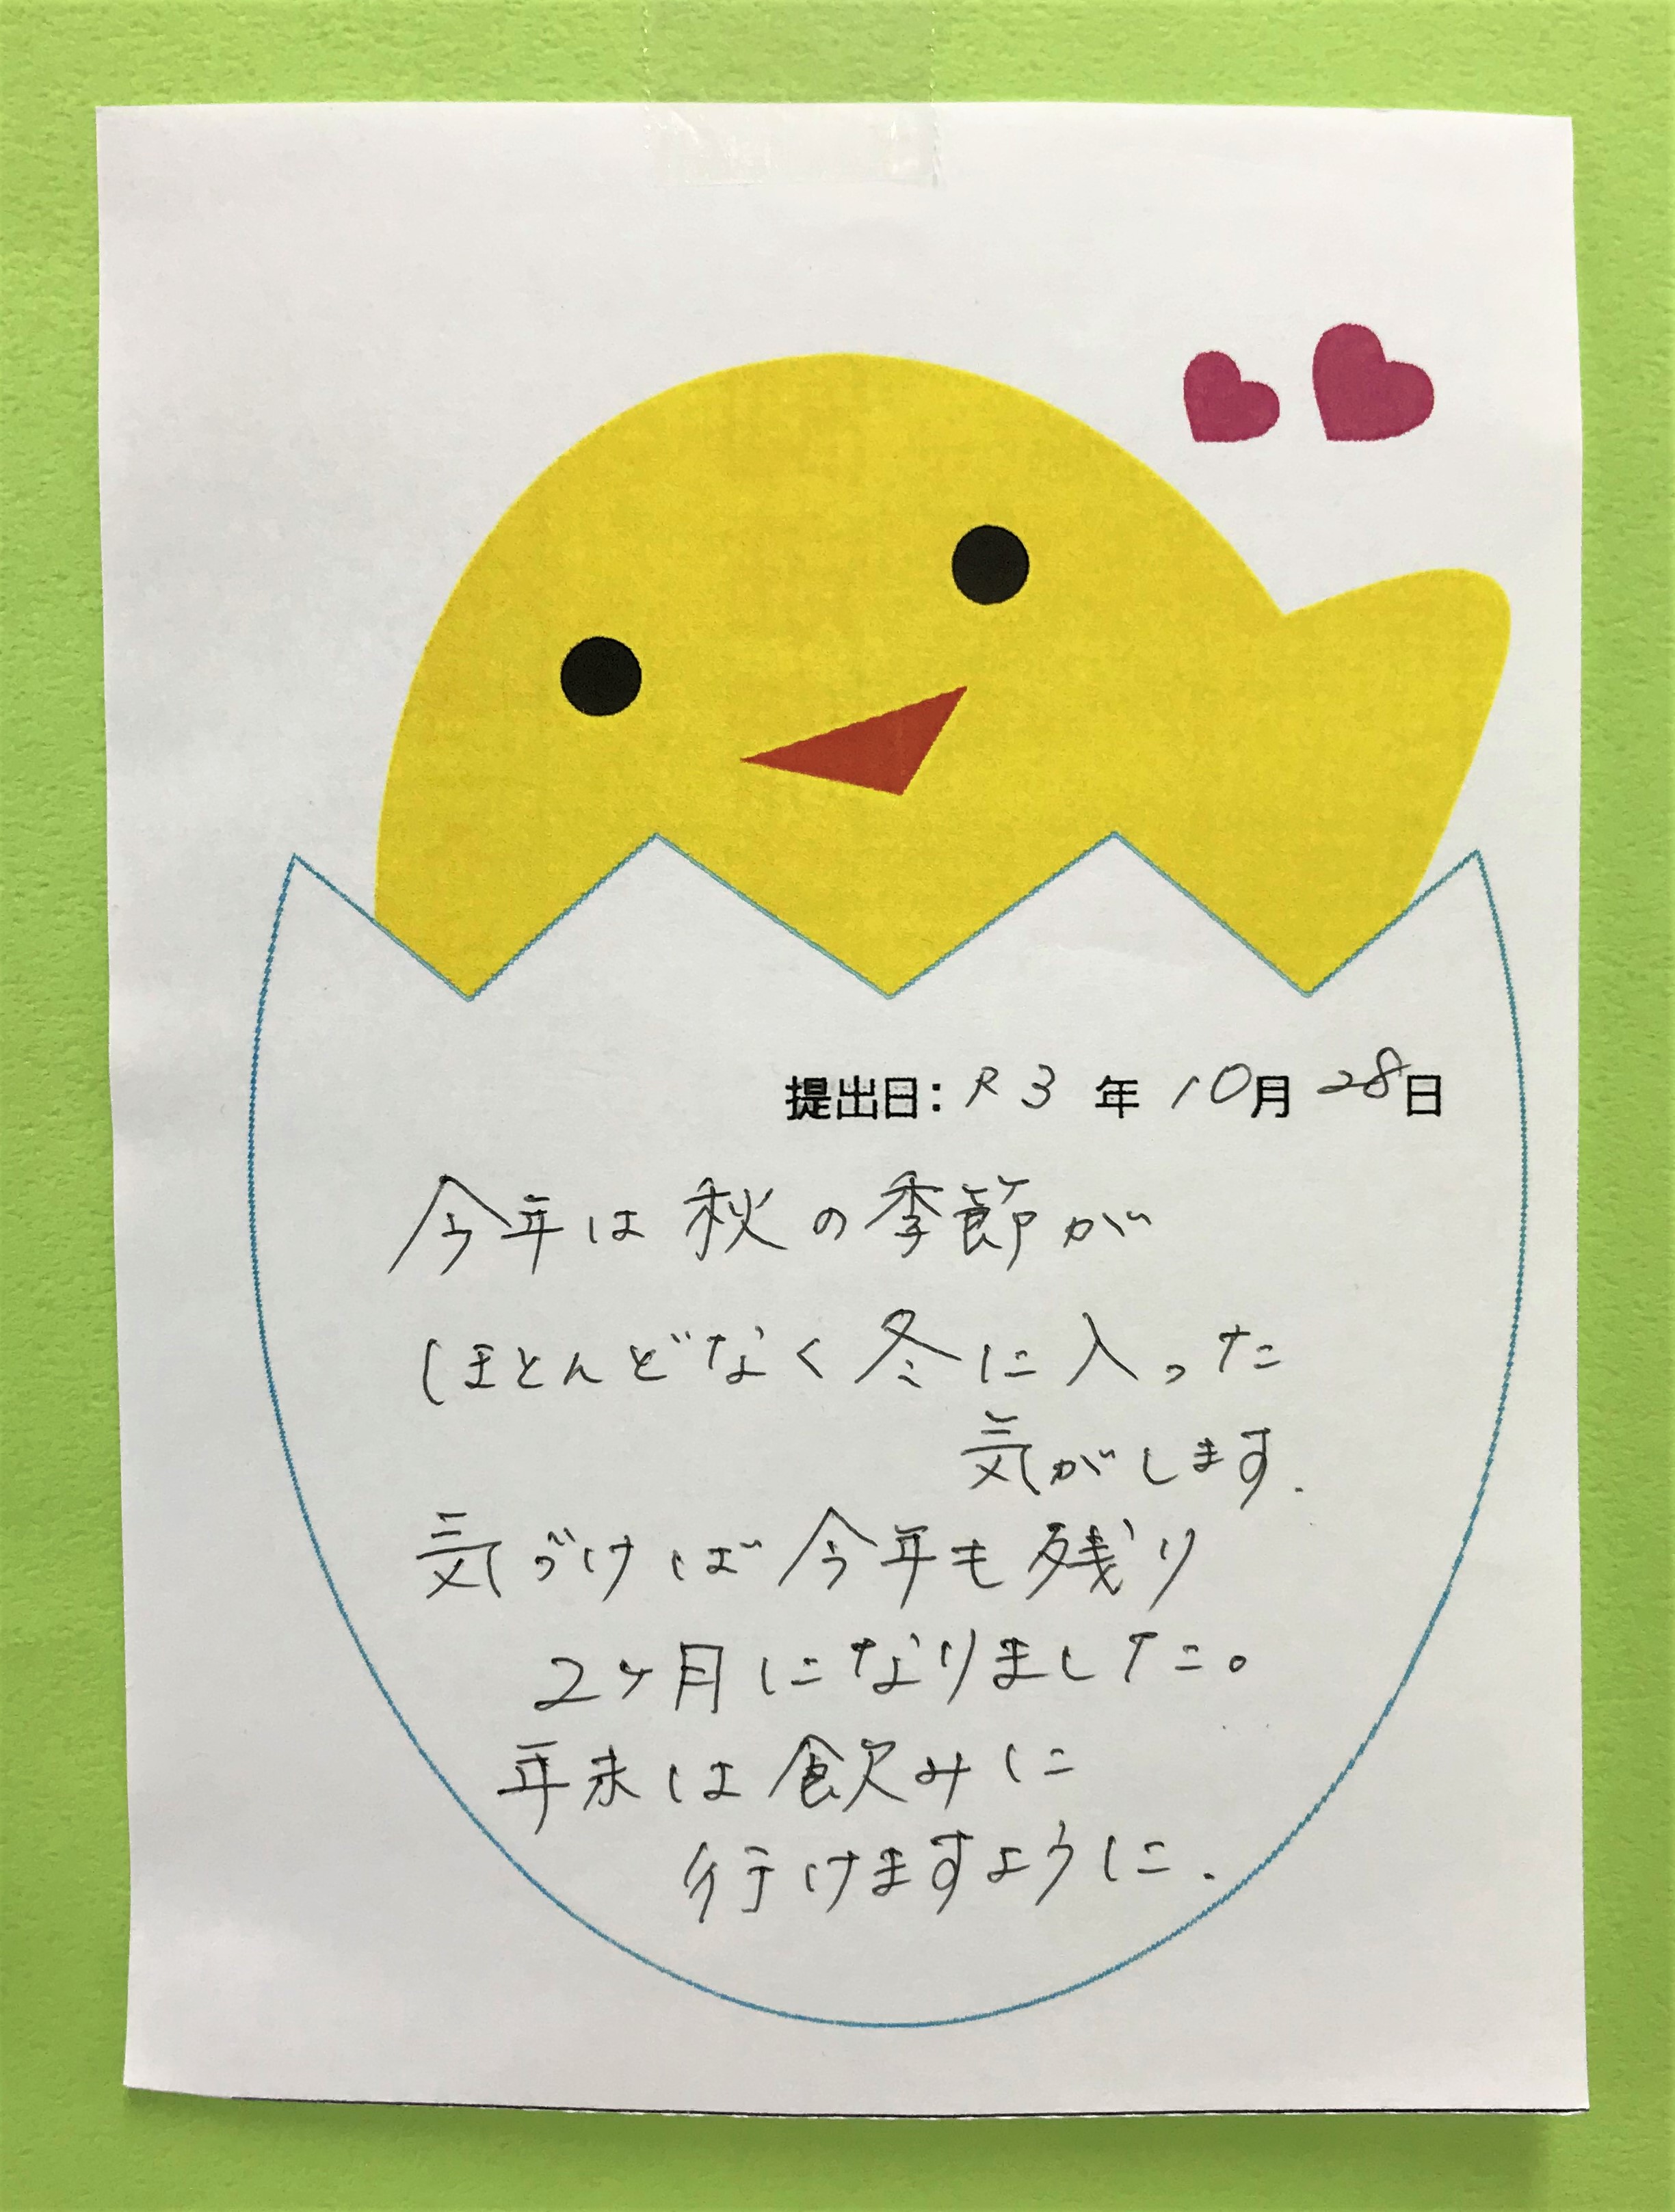 提出日：R3年10月28日
今年は秋の季節が
ほとんどなく冬に入った
気がします.
気づけば今年も残り
2ヶ月になりました。
年末は飲みに
行けますように.